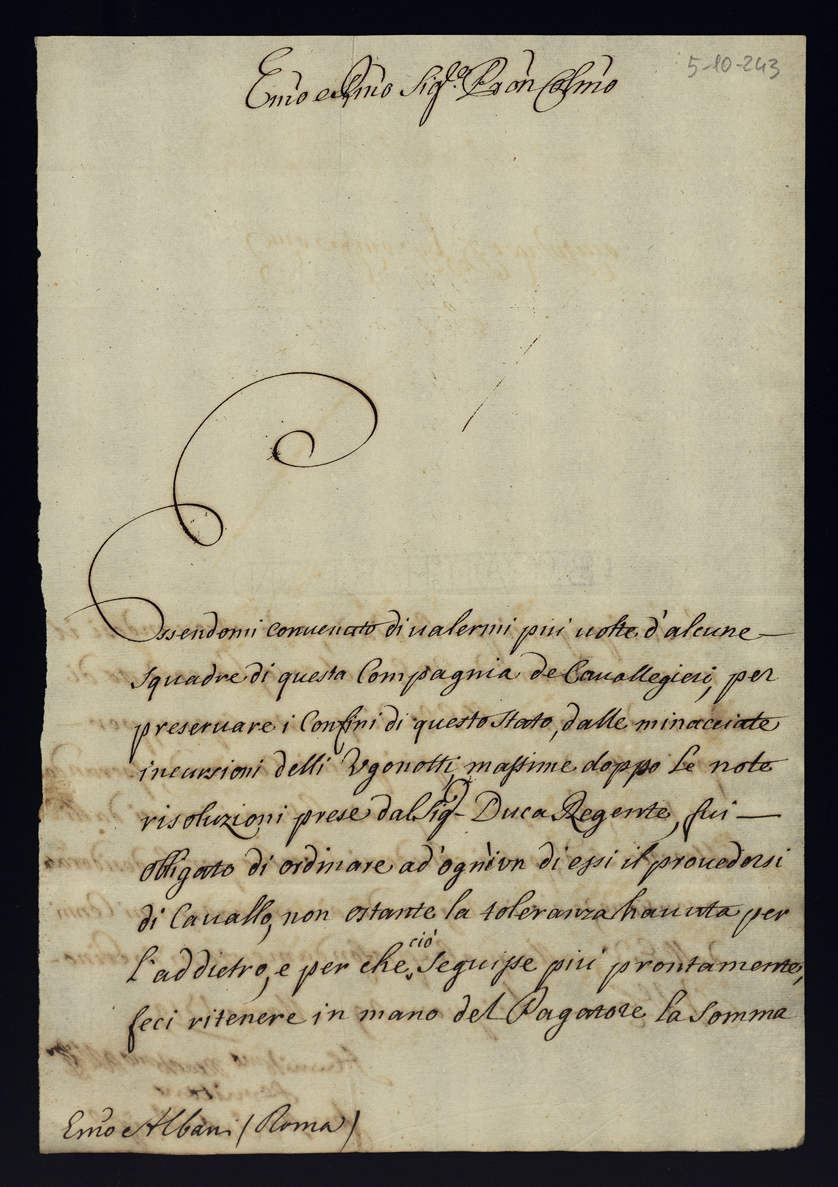 5-10-243
Emo e Rmo Sigre Pron Colmo
Essendomi convenuto di valermi più volte d'alcune
squadre di questa Compagnia de Cavallegieri, per
preservare i Confini di questo stato, dalle minacciate
incursioni delli Vgonotti, massime doppo le note
risoluzioni prese dal Sigr Duca Regente, fui
obligato di ordinare ad'ogn'vn di essi il provedersi
di Cavallo, non ostante la toleranza havuta per
l'addietro, e per che ciò seguisse più prontamente,
feci ritenere in mano del Pagatore la somma
Emo Albani (Roma)